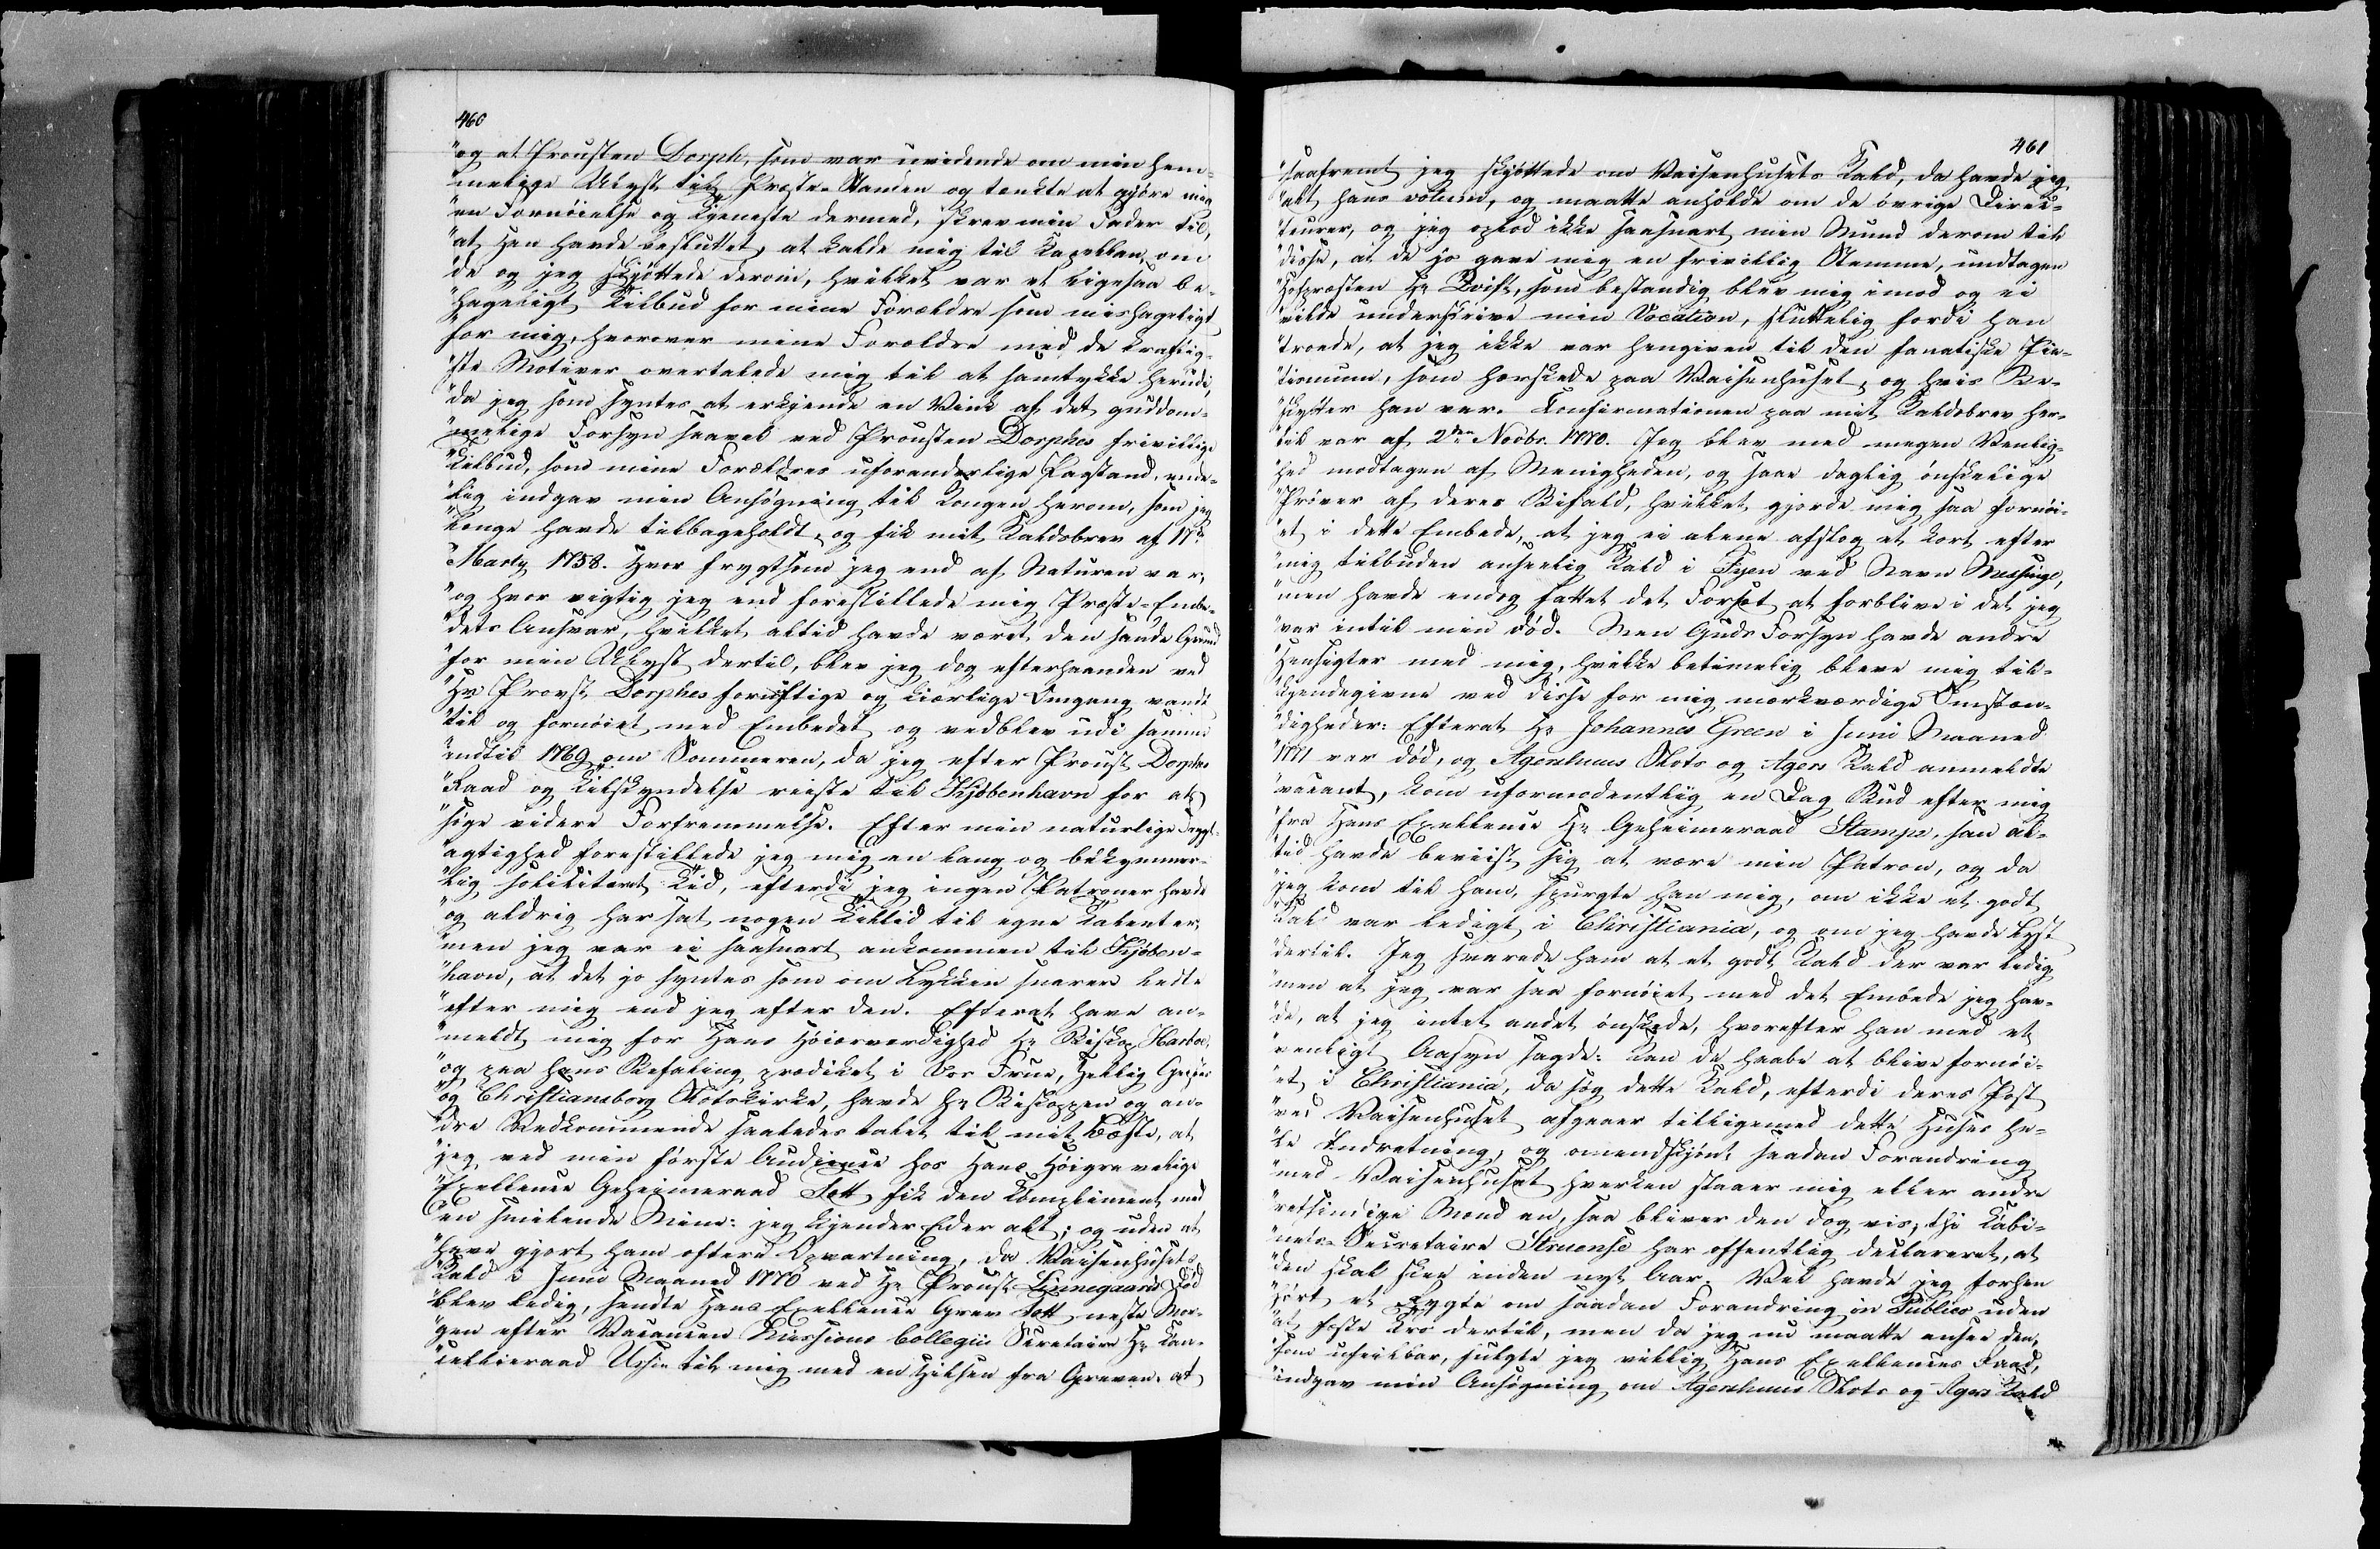 460
"og at Provsten Dorph, som var uvidende om min hem-
"melige Ulyst til Præste-Standen og tenkte at gjöre mig
"en Fornöielse og Tjeneste dermed, skrev min Fader til,
"at han havde besluttet, at kalde mig til Kapellan, om
"de og jeg skjöttede derom, hvilket var et ligesaa be-
"hageligt Tilbud for mine Forældre som mishageligt
"for mig, hvorover mine Forældre med de kraftig-
"ste Motiver overtalede mig til at samtykke herudi,
"da jeg som syntes at erkjende en Vink af det guddom-
"melige Forsyn saavel ved Provsten Dorphes frivillige
"Tilbud, som mine Forældres uforanderlige Paastand, ende-
"lig indgav min Ansögning til Kongen herom, som jeg
"lenge havde tilbageholdt, og fik mit Kaldsbrev af 17de
"Marty 1758. Hvor frygtsom jeg end af Naturen var,
"og hvor vigtig jeg end forestillede mig Præste-Embe-
"dets Ansvar, hvilket altid havde været den sande Grund
"for min Ulyst dertil, blev jeg dog efterhaanden ved
"Hr Provst Dorphes fornuftige og kiærlige Omgang vandt
"til og fornöiet med Embedet og vedblev udi samme
"indtil 1769 om Sommeren, da jeg efter Provst Dorphes
"Raad og Tilskyndelse reiste til Kjöbenhavn for at
"söge videre Forfremmelse. Efter min naturlige Frygt-
"agtighed forestillede jeg mig en lang og bekymmer-
"lig soliciterit Tid, efterdi jeg ingen Patroner havde
"og aldrig har sat nogen Tillid til egne Talenter,
"men jeg var ei saasnart ankommen til Kjöben-
"havn, at det jo syntes som om Lykken snarere ledte
"efter mig end jeg efter den. Efterat have an-
"meldt mig for Hans Höiærværdighed Hr Biskop Harboe,
"og paa hans Befaling prædiket i Vor Frue, Hellig Geistes
"og Christiansborg Slotskirke, havde Hr Biskoppen og an-
"dre Vedkommende saaledes talet til mit Bedste, at
"jeg ved min förste Audience hos Hans Höigrevelige
"Excellence Geheimeraad Tott fik den Compliment med
"en smilende Mine: jeg kjender Eder alt; og uden at
"have gjort ham oftere Opvartning, da Vaisenhusets
"Kald i Juni Maaned 1770 ved Hr Provst Linnegaards Död
"blev ledig, sendte Hans Excellence Grev Tott neste Mor-
"gen efter Vacancen Missions Collegii Secretaire Hr Can-
"cellieraad Ursin til mig med en Hilsen fra Greven, at
461
"saafremt jeg skjöttede om Vaisenhusets Kald, da havde jeg
"alt hans votum, og maatte anholde om de övrige Direc-
"teurer, og jeg oplod ikke saasnart min Mund derom til
"disse, at de jo gave mig en frivillig Stemme, undtagen
"Hofpræsten Hr Qvist, som bestandig blev mig imod og ei
"vilde underskrive min Vocation, sluttelig fordi han
"troede, at jeg ikke var hengiven til den fanatiske Pie-
"tismum, som herskede paa Vaisenhuset, og hvis Be-
"skytter han var. Confirmationen paa mit Kaldsbrev her-
"til var af 2den Novbr. 1770. Jeg blev med megen Venlig-
"hed modtagen af Menigheden, og saae daglig önskelige
"Pröver af deres Bifald, hvilket gjorde mig saa fornöi-
"et i dette Embede, at jeg ei alene afslog et kort efter
"mig tilbuden anseelig Kald i Fyen ved Navn Messinge,
"men havde endog fattet det Forsæt at forblive i det jeg
"var intil min Död. Men Guds Forsyn havde andre
"Hensigter med mig, hvilke betimelig bleve mig til-
"kjendegivne ved disse for mig mærkværdige Omstæn-
"digheder: Efterat Hr Johannes Green i Juni Maaned
"1771 var död, og Agershuus Slots og Agers Kald anmeldte
"vacant, kom uformodentlig en Dag Bud efter mig
"fra Hans Excellence Hr Geheimeraad Stampe, han al-
"tid havde beviist sig at være min Patron, og da
"jeg kom til ham, spurgte han mig, om ikke et godt
"Kald var ledigt i Christiania, og om jeg havde Lyst
"dertil. Jeg svarede ham at et godt Kald der var ledig
"men at jeg var saa fornöiet med det Embede jeg hav-
"de, at jeg intet andet önskede, hvorefter han med et
"venligt Aasyn sagde: kan de haabe at blive fornöi-
"et i Christiania, da sög dette Kald, efterdi deres Post
"ved Vaisenhuset afgaaer tilligemed dette Huses he-
"le Indretning, og omendskjönt saadan Forandring
"med Vaisenhuset hverken staaer mig eller andre
"retsindige Mænd an, saa bliver den dog vis; thi Cabi-
"nets-Secretaire Struense har offentlig declareret, at
"den skal skee inden nyt Aar. Vel havde jeg forhen
"hört et Rygte om saadan Forandring in Publico uden
"at fæste Tro dertil, men da jeg nu maatte ansee den,
"som ufeilbar, fulgte jeg villig Hans Excellences Raad,
"indgav min Ansögning om Agershuus Slots og Agers Kald